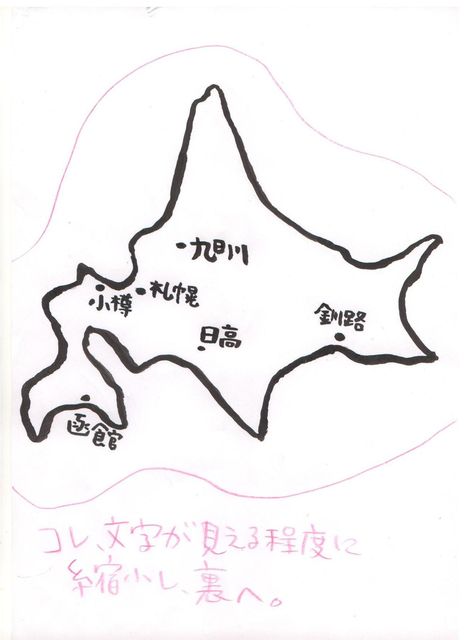 旭川
札幌
小樽
釧路
日高
函館
コレ、文字が見える程度に
縮小し、裏へ。